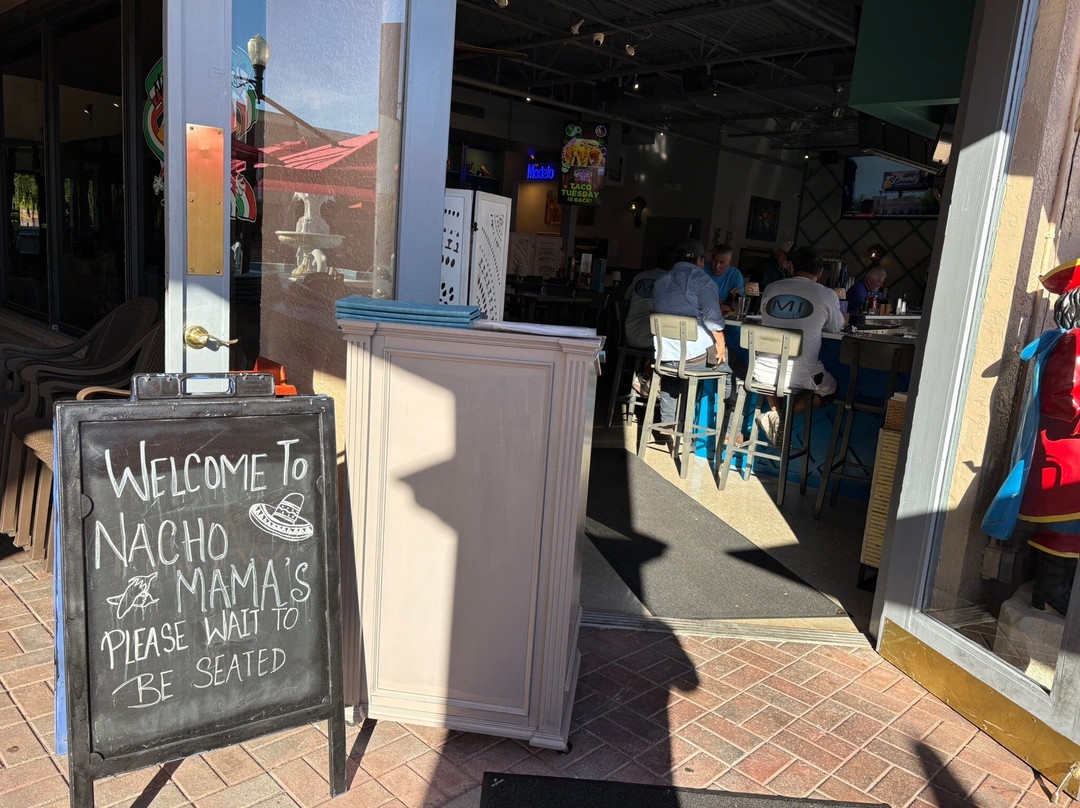 WELCOME TO
NACHO
MAMA'S
PLEASE WAIT TO
BE SEATED
Modelo
TACO
TUESDAY
IS BACK!
MJ